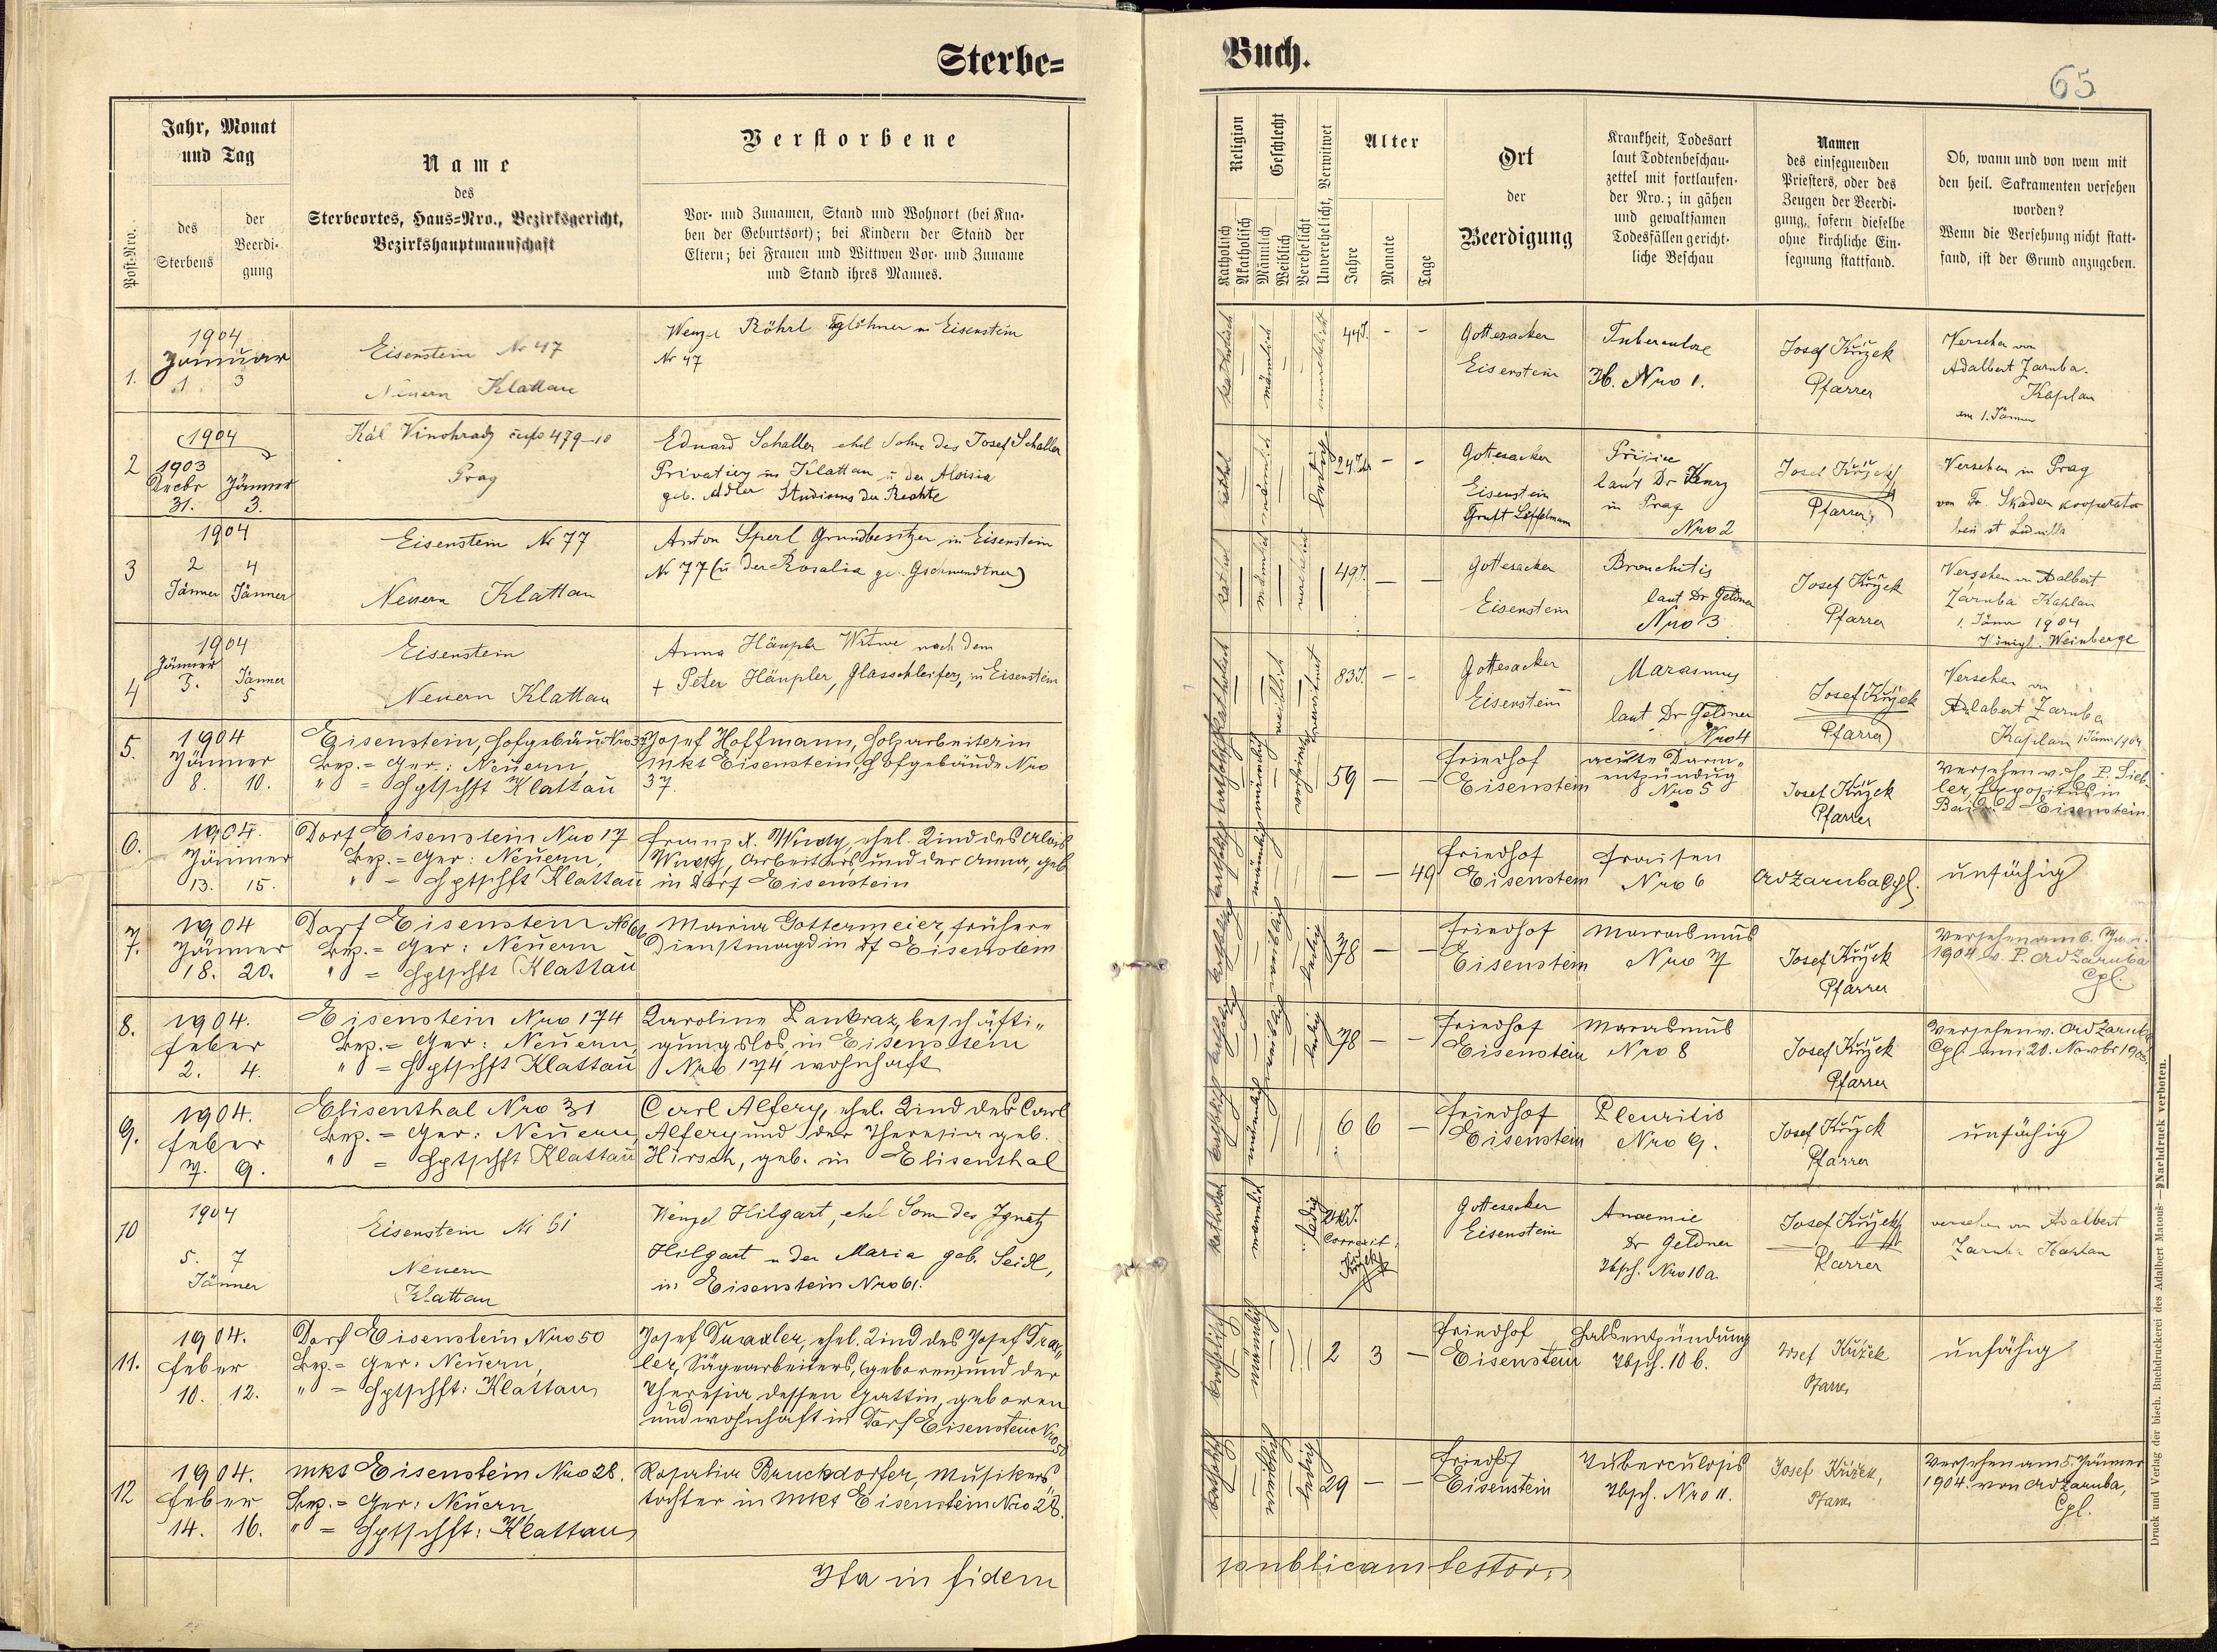 Sterbe=
Buch.
65
Post-Nro.
Jahr, Monat
und Tag
des
Sterbens
der
Beerdi-
gung
Name
des
Sterbeortes, Haus=Nro., Bezirksgericht,
Bezirkshauptmannschaft
Verstorbene
Vor- und Zunamen, Stand und Wohnort (bei Kna-
ben der Geburtsort); bei Kindern der Stand der
Eltern; bei Frauen und Wittwen Vor- und Zuname
und Stand ihres Mannes.
Religion
Katholisch
Akatholisch
Geschlecht
Männlich
Weiblich
Verehelicht
Unverehelicht, Verwitwet
Alter
Jahre
Monate
Tage
Ort
der
Beerdigung
Krankheit, Todesart
laut Todtenbeschau-
zettel mit fortlaufen-
der Nro.; in gähen
und gewaltsamen
Todesfällen gericht-
liche Beschau
Namen
des einsegnenden
Priesters, oder des
Zeugen der Beerdi-
gung, sofern dieselbe
ohne kirchliche Ein-
segnung stattfand.
Ob, wann und von wem mit
den heil. Sakramenten versehen
worden?
Wenn die Versehung nicht statt-
fand, ist der Grund anzugeben.
1.
1904
Januar
1 3
Eisenstein Nr 47
Neuern Klattau
Wenzel Röhrl Taglöhner in Eisenstein
Nr 47
katholisch
männlich
44J. - -
Gottesacker
Eisenstein
Tuberculose
Nro 1.
Josef Křížek
Pfarrer
Versehen von
Adalbert Zaruba.
Kaplan
am 1. Jänner
2
1904
1903
Decbr Jänner
31. 3.
Král Vinohrady čp 479-10
Prag
Eduard Schaller ehel Sohn des Josef Schaller
Privatier in Klattau u der Aloisia
geb. Adler Studiosus der Rechte
ledig
24J. - -
Gottesacker
Eisenstein
Gruft Löffelmann
laut Dr
in Prag
Nro 2
Josef Křížek
Pfarrer
Versehen in Prag
von Fr. Skaden kooperator
bei st Ludmilla
3
1904
2 4
Jänner Jänner
Eisenstein Nr 77
Neuern Klattau
Anton Sperl Grundbesitzer in Eisenstein
Nr 77 (u der Rosalia ge. Gschwendtner)
49J. - -
Gottesacker
Eisenstein
Bronchitis
laut Dr Geldner
Nro 3
Josef Křížek
Pfarrer
Versehen von Adalbert
Zaruba Kaplan
1. Jänner 1904
Königl. Weinberge
4
1904
Jänner Jänner
3. 5
Eisenstein
Neuern Klattau
Anna Häupler Witwe nach dem
+ Peter Häupler, Glasschleifers, in Eisenstein
katholisch
verwitwet
83J. - -
Gottesacker
Eisenstein
Marasmus
laut Dr Geldner
Nro 4
Josef Křížek
Pfarrer
Versehen von
Adalabert Zaruba
Kaplan 1 Jänn 1904
5.
1904
Jänner
8. 10.
Eisenstein, Hofgebäu. Nro 37
Bez.= Ger.: Neuern,
" = Hptschft Klattau
Josef Hoffmann, Holzarbeiter in
Mkt Eisenstein, Hofgebäude Nro
37.
59 - -
Friedhof
Eisenstein
acute Darm-
entzündug
Nro 5
Josef Křížek
Pfarrer
Versehen v. H. P. Sieb-
ler, Expositus in
Bair. = Eisenstein.
6.
1904.
Jänner
13. 15.
Dorf Eisenstein Nro 17
Bez.= Ger: Neuern,
" = Hptschft Klattau
Franz X. Wudy, ehel. Kind des Alois
Wudy, Arbeiters, und der Anna, geb
in Dorf Eisenstein
- - 49
Friedhof
Eisenstein
Fraisen
Nro 6
Ad Zaruba Cpl.
unfähig
7.
1904
Jänner
18. 20.
Dorf Eisenstein No 66
Bez.= Ger: Neuern
" = Hptschft Klattau
Maria Gottermeier, frühere
Dienstmagd in Df Eisenstein
ledig
78 - -
Friedhof
Eisenstein
Marasmus
Nro 7
Josef Křížek
Pfarrer
Versehen am 6. Jan.
1904 v. P. Ad Zaruba
Cpl.
8.
1904.
Feber
2. 4.
Eisenstein Nro 174
Bez.= Ger: Neuern,
" = Hptschft Klattau
Karoline Pankraz, beschäfti-
gungslos, in Eisenstein
Nro 174 wohnhaft
ledig
78 - -
Friedhof
Eisenstein
Marasmus
Nro 8
Josef Křížek
Pfarrer
Versehen v. Ad Zaruba
Cpl. am 20. Novbr 1903.
9.
1904.
Feber
7. 9.
Elisenthal Nro 31
Bez.= Ger: Neuern,
" = Hptschft Klattau
Carl Alfery, ehel. Kind des Carl
Alfery und der Theresia geb.
Hirsch, geb. in Elisenthal
6 6 -
Friedhof
Eisenstein
Pleuritis
Nro 9.
Josef Křížek
Pfarrer
unfähig
10
1904
5. 7
Jänner
Eisenstein Nr 61
Neuern
Klattau
Wenzel Hilgart, ehel Sohn des Ignatz
Hilgart u der Maria geb. Seidl,
in Eisenstein Nro 61.
ledig
Correxit:
Křížek
Gottesacker
Eisenstein
Anaemie
Dr Geldner
Tbsch. Nro 10a
Josef Křížek
Pfarrer
versehen von Adalbert
Zaruba Kaplan
11.
1904.
Feber
10. 12.
Dorf Eisenstein Nro 50
Bez.= Ger: Neuern,
" = Hptschft: Klattau
Josef Draxler, ehel. Kind des Josef Drax-
ler, Sägearbeiters, (geboren) und der
Theresia, dessen Gattin, geboren
und wohnhaft in Dorf Eisenstein Nro 50
2 3 -
Friedhof
Eisenstein
Halsentzündung
Tbsch. 10 b.
Josef Křížek
Pfarrer
unfähig
12
1904.
Feber
14. 16.
Mkt Eisenstein Nro 28.
Bez.= Ger: Neuern,
" = Hptschft: Klattau
Rosalia Bruckdorfer, Musikers-
tochter in Mkt Eisenstein Nro 28.
katholisch
ledig
29 - -
Friedhof
Eisenstein
Tuberculosis
Tbsch. Nro 11.
Josef Křížek,
Pfarrer
Versehen am 5. Jänner
1904. von Ad Zaruba,
Cpl.
Ita in fidem
publicam testor.
Druck und Verlag der bisch. Buchdruckerei des Adalbert Matouš — Nachdruck verboten.